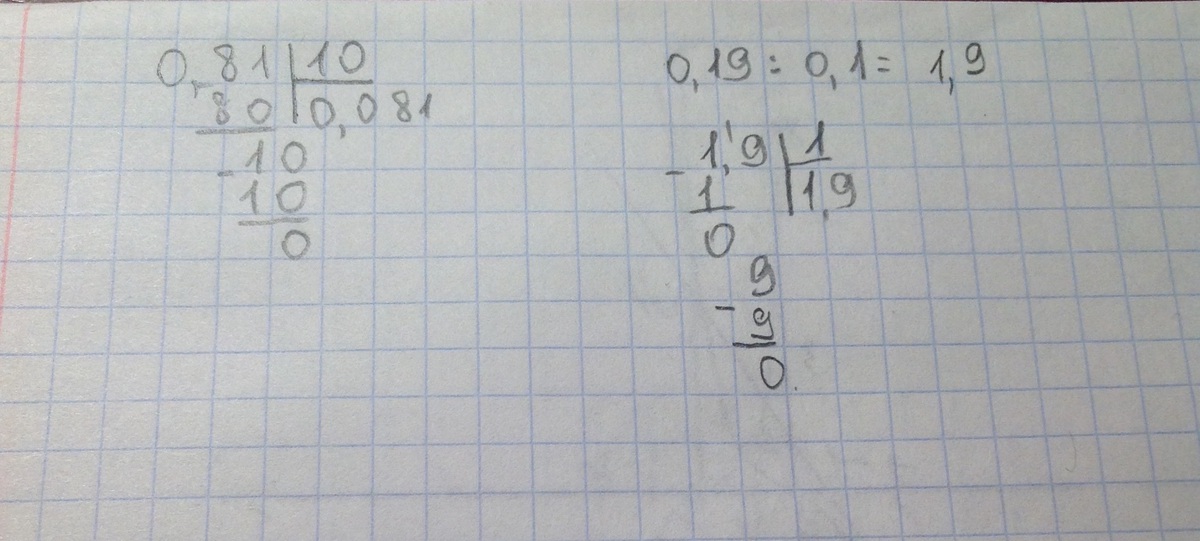 0,81 | 10
- 80 | 0,081
- 10
10
0
0,19 : 0,1 = 1,9
- 1,9 | 1
1 | 1,9
0
9
- 9
0.